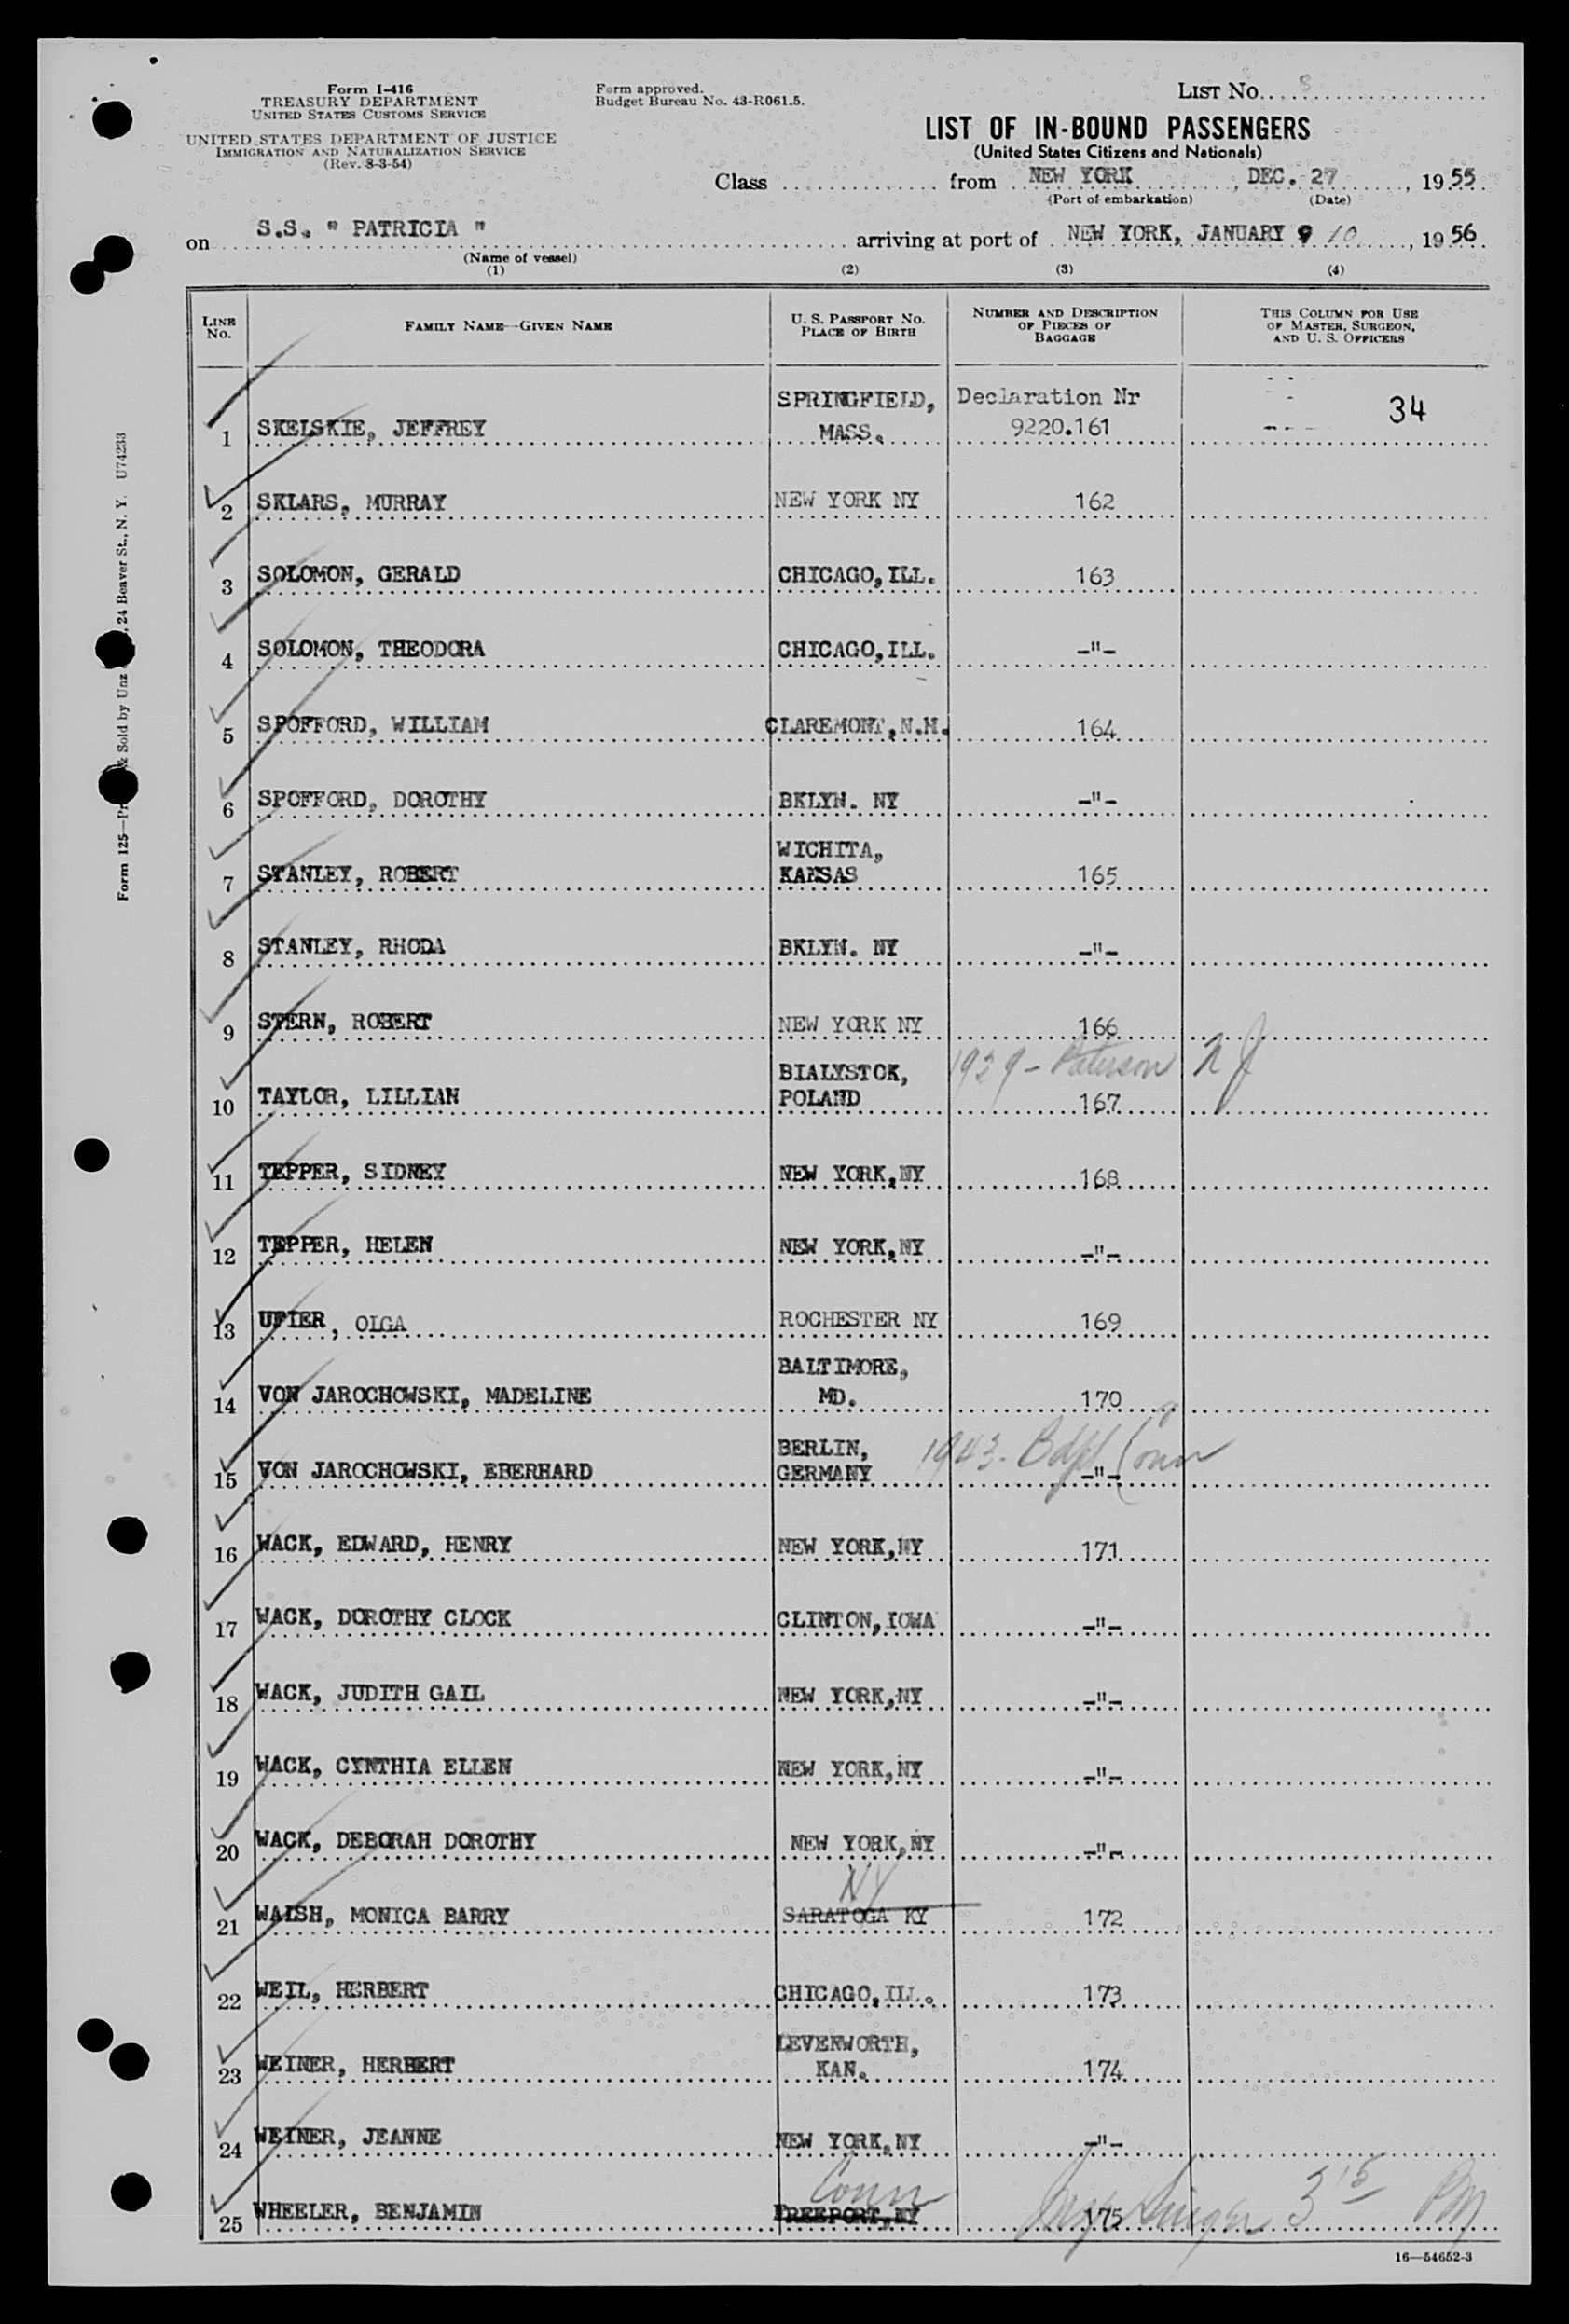 Form I-416
TREASURY DEPARTMENT
UNITED STATES CUSTOMS SERVICE
UNITED STATES DEPARTMENT OF JUSTICE
IMMIGRATION AND NATURALIZATION SERVICE
(Rev. 8-3-54)
Form approved.
Budget Bureau No. 43-R061.5.
LIST No. 8
LIST OF IN-BOUND PASSENGERS
(United States Citizens and Nationals)
Class from NEW YORK, DEC. 27, 1955
(Port of embarkation) (Date)
on S.S. " PATRICIA " arriving at port of NEW YORK, JANUARY 9 10, 1956
(Name of vessel)
(1) (2) (3) (4)
LINE No. FAMILY NAME—GIVEN NAME U. S. PASSPORT No. PLACE OF BIRTH NUMBER AND DESCRIPTION OF PIECES OF BAGGAGE THIS COLUMN FOR USE OF MASTER, SURGEON, AND U. S. OFFICERS
1 SKELSKIE, JEFFREY SPRINGFIELD, MASS. Declaration Nr 9220.161 34
2 SKLARS, MURRAY NEW YORK NY 162
3 SOLOMON, GERALD CHICAGO, ILL. 163
4 SOLOMON, THEODORA CHICAGO, ILL. -"-
5 SPOFFORD, WILLIAM CLAREMONT, N.H. 164
6 SPOFFORD, DOROTHY BKLYN. NY -"-
7 STANLEY, ROBERT WICHITA, KANSAS 165
8 STANLEY, RHODA BKLYN. NY -"-
9 STERN, ROBERT NEW YORK NY 166
1939 - Paterson N J
10 TAYLOR, LILLIAN BIALYSTOK, POLAND 167
11 TEPPER, SIDNEY NEW YORK, NY 168
12 TEPPER, HELEN NEW YORK, NY -"-
13 UFIER, OLGA ROCHESTER NY 169
14 VON JAROCHOWSKI, MADELINE BALTIMORE, MD. 170
1943. Bdpt Conn
15 VON JAROCHOWSKI, EBERHARD BERLIN, GERMANY -"-
16 WACK, EDWARD, HENRY NEW YORK, NY 171
17 WACK, DOROTHY CLOCK CLINTON, IOWA -"-
18 WACK, JUDITH GAIL NEW YORK, NY -"-
19 WACK, CYNTHIA ELLEN NEW YORK, NY -"-
20 WACK, DEBORAH DOROTHY NEW YORK, NY -"-
NY
21 WALSH, MONICA BARRY SARATOGA KY 172
22 WEIL, HERBERT CHICAGO, ILL. 173
23 WEINER, HERBERT LEVENWORTH, KAN. 174
24 WEINER, JEANNE NEW YORK, NY -"-
Conn
25 WHEELER, BENJAMIN FREEPORT, NY 175 3 15 PM
16—54652-3
Form 125—Pr & Sold by Unz , 24 Beaver St., N. Y. U74233